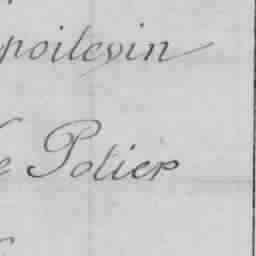 poilevin
e Polier